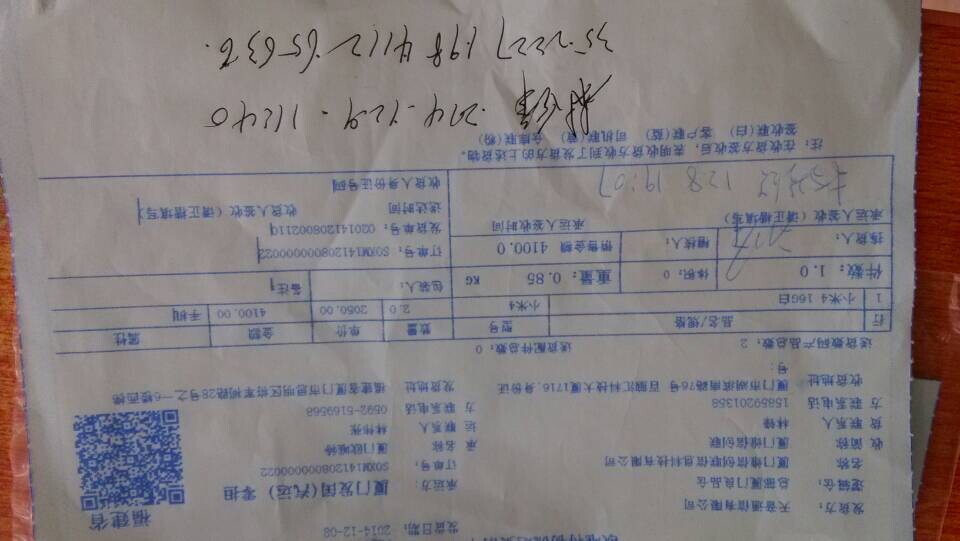 发货日期： 2014-12-08
福建省
发货方： 天音通信有限公司
承运方： 厦门发网(汽运) 零担
逻辑仓： 总部厦门良品仓
订单号： SOXM141208000000022
名称 厦门维信创联信息科技有限公司
收 简称 厦门维信创联
承 名称
货 联系人 林锋
运 联系人
方 联系电话 15859201358
方 联系电话 0592-5169568
收货地址 厦门市湖滨南路76号百脑汇科技大厦1716,身份证号：
发货地址 福建省厦门市思明区将军祠路28号之一6楼西梯
送货数码产品总数： 2 送货配件总数： 0
行 品名/规格 型号 数量 单价 金额 属性
1 小米4 16G白 小米4 2.0 2050.00 4100.00 手机
件数： 1.0 体积： 0 重量： 0.85 KG 包装人： 备注
拣货人： 稽核人： 销售金额 4100.0 订单号： SOXM141208000000022
承运人签收（请正楷填写） 承运人签收时间 发货单号： 0201412080021
送达时间 收货人签收（请正楷填写）
128 19:07
收货人身份证号码
注： 在收货方签收后，表明收货方收到了发货方的上述货物。
签收联(白) 客户联(蓝) 司机联(黄) 仓库联(粉)
2014-12-9. 11:40
352227 198 4112 65636.